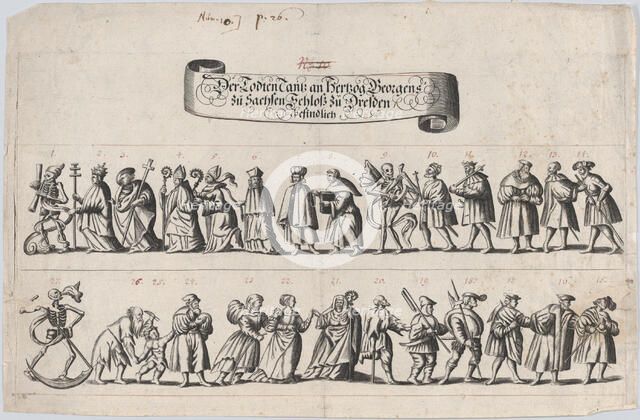 Num. 10.] p. 26.
Der Todten Tantz an Hertzog Georgens
zu Sachsen Schloß zu Dresden
befindlich
1. 2. 3. 4. 5. 6. 8. 9. 10. 11. 12. 13. 14.
27. 26. 25. 24. 23. 22. 21. 20. 19. 18. 17. 16. 15.